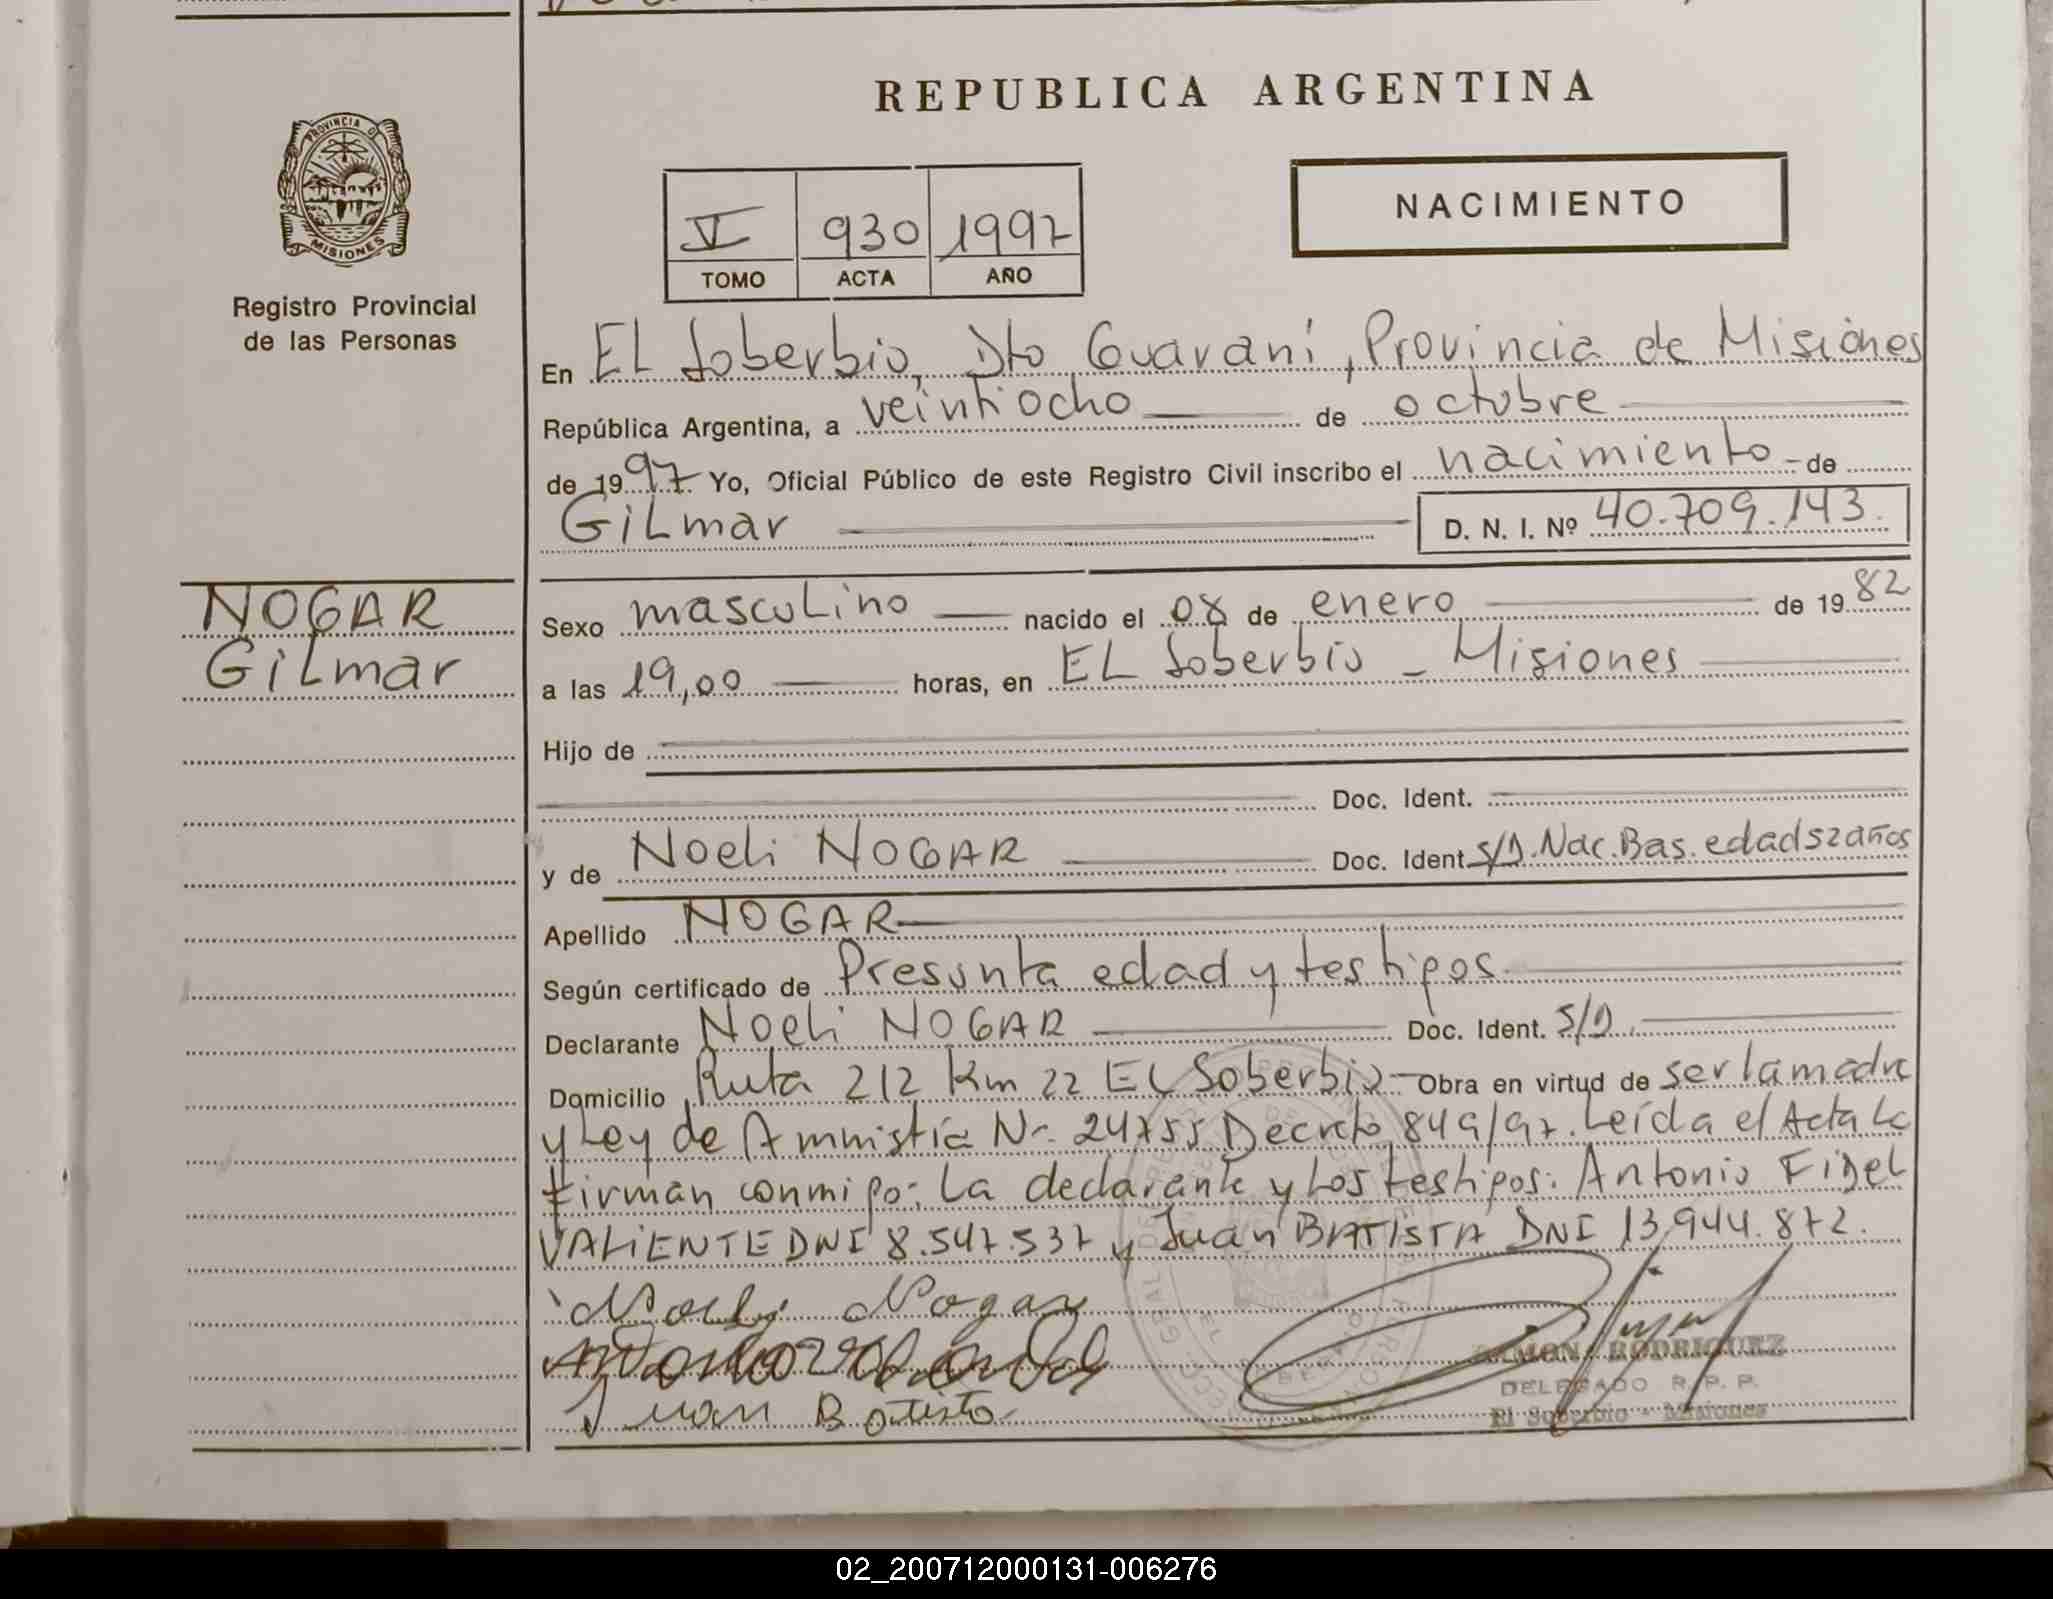 REPUBLICA ARGENTINA
PROVINCIA D
MISIONES
Registro Provincial
de las Personas
V 930 1997
TOMO ACTA AÑO
NACIMIENTO
En EL Soberbio, Dto Guaraní, Provincia de Misiones
República Argentina, a veintiocho de octubre
de 1997 Yo, Oficial Público de este Registro Civil inscribo el nacimiento - de
GiLmar D. N. I. Nº 40.709.143.
NOGAR
GiLmar
Sexo mascuLino nacido el 08 de enero de 1982
a las 19,00 horas, en EL Soberbio - Misiones
Hijo de
Doc. Ident.
y de Noeli NOGAR Doc. Ident. S/D. Nac. Bas. edad 52 años
Apellido NOGAR
Según certificado de Presunta edad y testigos
Declarante Noeli NOGAR Doc. Ident. S/D.
Domicilio Ruta 212 Km 22 EL Soberbio - Obra en virtud de ser la madre
y Ley de Amnistía Nr. 24755 Decreto 849/97. Leída el Acta la
firman conmigo: La declarante y Los testigos: Antonio FiDeL
VALiENTE DNI 8.547.537 y Juan BATISTA DNI 13.944.872.
Noely Nogar
Juan Batista
RAMON RODRIGUEZ
DELEGADO R. P. P.
El Soberbio - Misiones
02_200712000131-006276